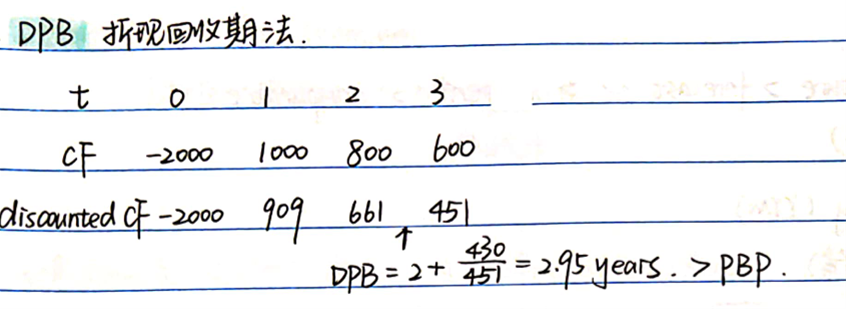 DPB 折现回收期法.
t 0 1 2 3
CF -2000 1000 800 600
discounted CF -2000 909 661 451
↑
DPB = 2 + 430/451 = 2.95 years. > PBP.